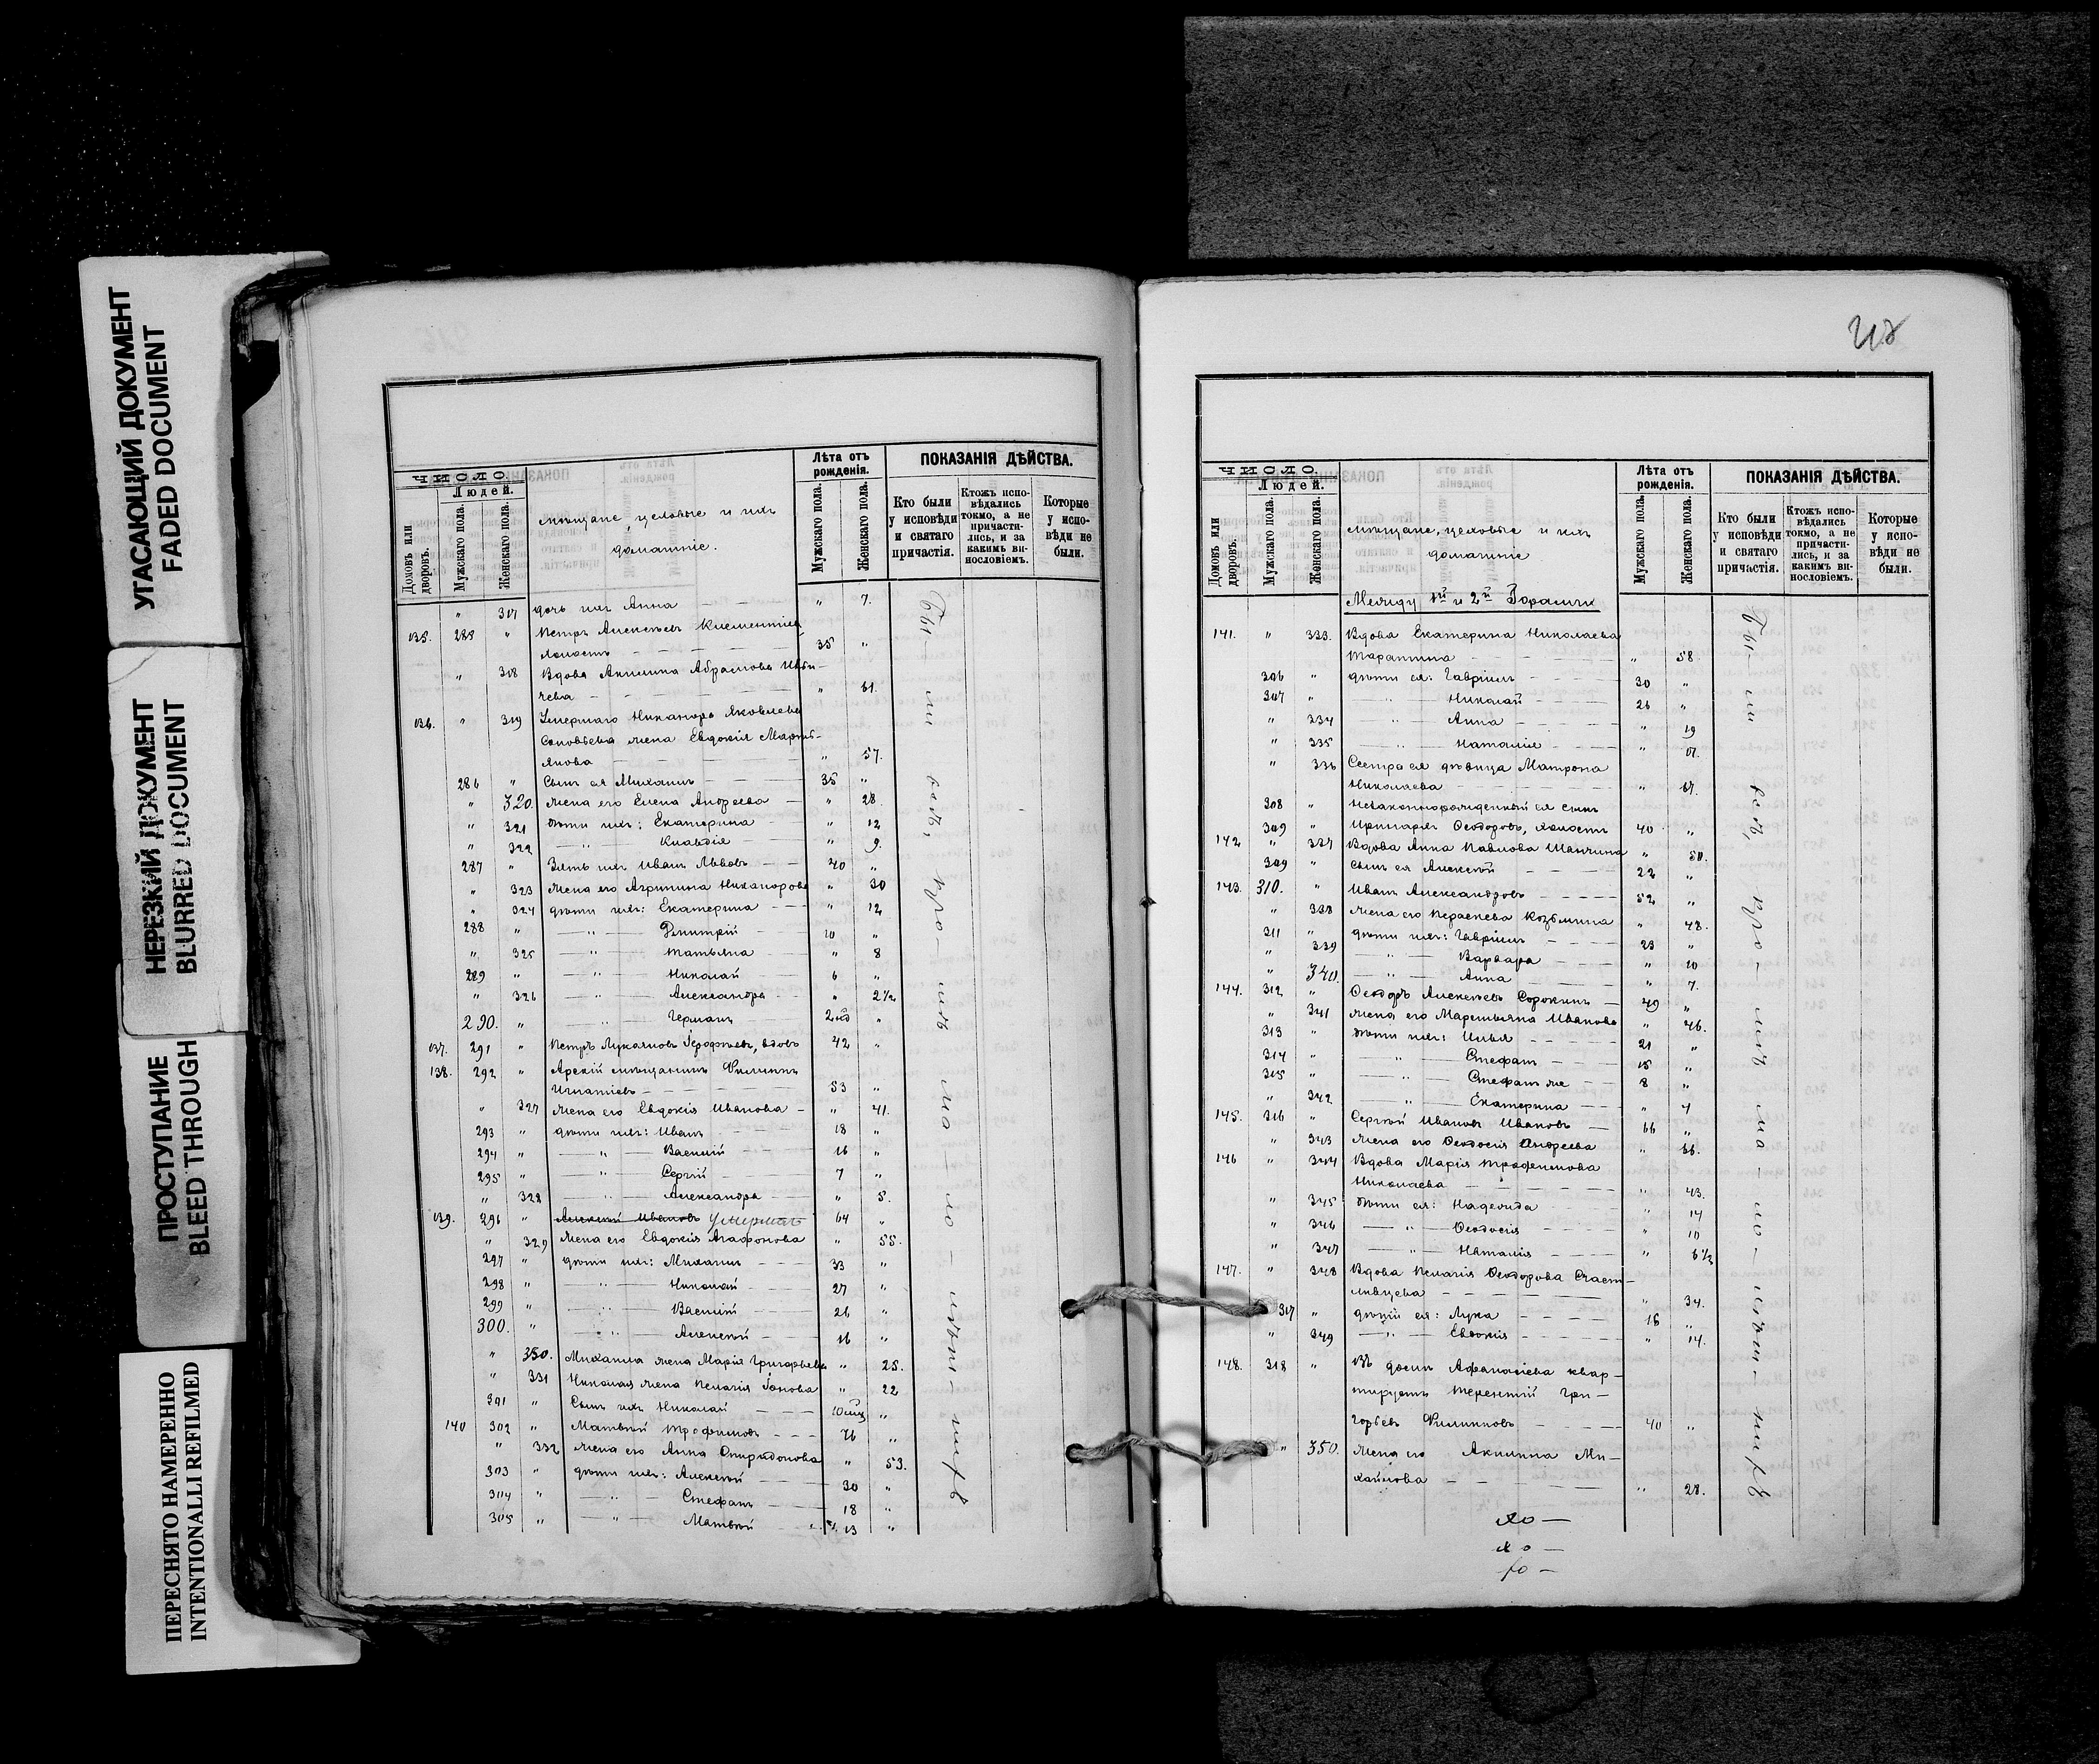 УГАСАЮЩИЙ ДОКУМЕНТ
FADED DOCUMENT
НЕРЕЗКИЙ ДОКУМЕНТ
BLURRED DOCUMENT
ПРОСТУПАНИЕ
BLEED THROUGH
ПЕРЕСНЯТО НАМЕРЕННО
INTENTIONALLI REFILMED
ЧИСЛО.
Людей.
Домовъ или дворовъ.
Мужскаго пола.
Женскаго пола.
мѣщане, цеховые и ихъ
домашніе.
Лѣта отъ рожденія.
Мужскаго пола.
Женскаго пола.
ПОКАЗАНІЯ ДѢЙСТВА.
Кто были у исповѣди и святаго причастія.
Ктожъ исповѣдались токмо, а не причастились, и за какимъ винословіемъ.
Которые у исповѣди не были.
" 317 дочь ихъ Анна " 7.
135. 285 " Петръ Алексѣевъ
холостъ 35 "
" 318 Вдова Акилина Абрамова
чева " 61.
136. " 319 Умершаго Никанора Яковлева
Соловьева жена Евдокія
" 57.
286 " Сынъ ея Михаилъ 35 "
" 320. жена его Елена Андреева " 28
" 321 дѣти ихъ: Екатерина " 12
" 322 — " — Клавдія " 9.
287 " Зять ихъ Иванъ Львовъ 40 "
" 323 жена его Агрипина Никанорова " 30
" 324 дѣти ихъ: Екатерина " 12
288 " — " — Димитрій 10 "
" 325 — " — Татьяна " 8
289 " — " — Николай 6 "
" 326 — " — Александра " 2½
290. " — " — Германъ "
137. 291 " Петръ Лукьяновъ, вдовъ 42 "
138. 292 " Арскій мѣщанинъ Филиппъ
Игнатіевъ 53 "
" 327 жена его Евдокія Иванова " 41.
293 " дѣти ихъ: Иванъ 18 "
294 " — " — Василій 16 "
295 " — " — Сергій 7 "
" 328 — " — Александра " 5.
139. 296 " Алексѣй Ивановъ умершій 64 "
" 329 жена его Евдокія Агафонова " 55.
297 " дѣти ихъ: Михаилъ 33 "
298 " — " — Николай 27 "
299 " — " — Василій 26 "
300. " — " — Алексѣй 16 "
" 330. Михаила жена Марія Григорьева " 25.
" 331 Николая жена Пелагія " 22
301 " Сынъ ихъ Николай "
140 302 " Матвѣй Трофимовъ 76 "
" 332 жена его Анна Спиридонова " 53.
303 " дѣти ихъ: Алексѣй 30 "
304 " — " — Стефанъ 18 "
305 " — " — Матвѣй 13 "
Бы — ли всѣ,
ЧИСЛО.
Людей.
Домовъ или дворовъ.
Мужскаго пола.
Женскаго пола.
мѣщане, цеховые и ихъ
домашніе
Лѣта отъ рожденія.
Мужскаго пола.
Женскаго пола.
ПОКАЗАНІЯ ДѢЙСТВА.
Кто были у исповѣди и святаго причастія.
Ктожъ исповѣдались токмо, а не причастились, и за какимъ винословіемъ.
Которые у исповѣди не были.
Между 1й и 2й
141. " 333. Вдова Екатерина Николаева
" 58.
306 " дѣти ея: Гавріилъ 30 "
307 " — " — Николай 26 "
" 334 — " — Анна " 19
" 335 — " — Наталія "
" 336 Сестра ея дѣвица Матрона
Николаева " 67.
308 " Незаконнорожденный ея сынъ
Ѳеодоровъ, холостъ 40 "
142 " 337 Вдова Анна Павлова " 50.
309 " сынъ ея Алексѣй 22 "
143. 310. " Иванъ Александровъ 52 "
" 338 жена его Параскева Козьмина " 48.
311 " дѣти ихъ: Гавріилъ 23 "
" 339 — " — Варвара " 10
" 340. — " — Анна " 7.
144. 312 " Ѳеодоръ Алексѣевъ Сорокинъ 49 "
" 341 жена его Маремьяна Иванова " 46.
313 " дѣти ихъ: Илья 21 "
314 " — " — Стефанъ 15 "
315 " — " — Стефанъ же 8 "
" 342 — " — Екатерина " 4
145. 316 " Сергѣй Ивановъ Ивановъ 66 "
" 343 жена его Ѳеодосія Андреева " 56.
146 " 344 Вдова Марія Трофимова
Николаева " 43.
" 345 дѣти ея: Надежда " 14
" 346 — " — Ѳеодосія " 10
" 347 — " — Наталія " 6½
147. " 348 Вдова Пелагія Ѳеодорова Счаст-
ливцева " 34.
317 " дѣти ея: Лука 16 "
" 349 — " — Евдокія " 14.
148. 318 " Въ домѣ Афанасіева квар-
тируетъ Терентій Гри-
горьевъ Филипповъ 40 "
" 350. жена его Акилина Ми-
хайлова " 28.
Бы — ли всѣ,